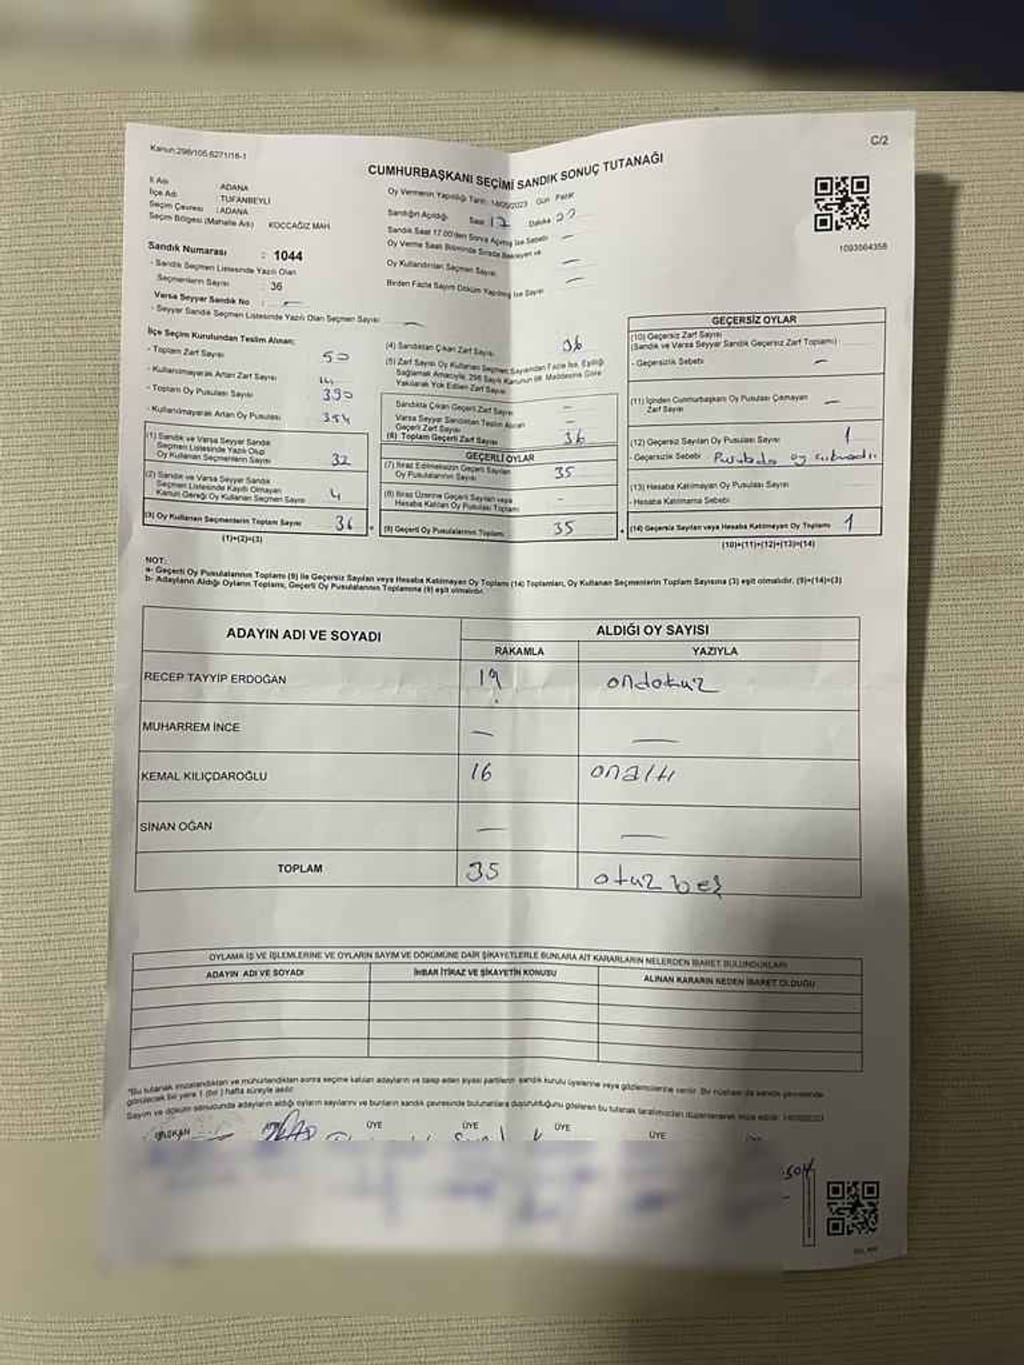 Kanun:298/105.6271/16-1
C/2
CUMHURBAŞKANI SEÇİMİ SANDIK SONUÇ TUTANAĞI
İl Adı : ADANA
İlçe Adı : TUFANBEYLİ
Seçim Çevresi : ADANA
Seçim Bölgesi (Mahalle Adı) KOCCAĞIZ MAH.
Sandık Numarası : 1044
- Sandık Seçmen Listesinde Yazılı Olan
Seçmenlerin Sayısı 36
Varsa Seyyar Sandık No : —
- Seyyar Sandık Seçmen Listesinde Yazılı Olan Seçmen Sayısı —
Oy Vermenin Yapıldığı Tarih: 14/05/2023 Gün Pazar
Sandığın Açıldığı Saat 17 Dakika 22
Sandık Saat 17.00'den Sonra Açılmış İse Sebebi —
Oy Verme Saati Bitiminde Sırada Bekleyen ve
Oy Kullandırılan Seçmen Sayısı —
Birden Fazla Sayım Döküm Yapılmış İse Sayısı —
1093564358
İlçe Seçim Kurulundan Teslim Alınan:
- Toplam Zarf Sayısı 50
- Kullanılmayarak Artan Zarf Sayısı 14
- Toplam Oy Pusulası Sayısı 390
- Kullanılmayarak Artan Oy Pusulası 354
(1) Sandık ve Varsa Seyyar Sandık
Seçmen Listesinde Yazılı Olup
Oy Kullanan Seçmenlerin Sayısı 32
(2) Sandık ve Varsa Seyyar Sandık
Seçmen Listesinde Kayıtlı Olmayan
Kanun Gereği Oy Kullanan Seçmen Sayısı 4
(3) Oy Kullanan Seçmenlerin Toplam Sayısı 36
(1)+(2)=(3)
(4) Sandıktan Çıkan Zarf Sayısı 36
(5) Zarf Sayısı Oy Kullanan Seçmen Sayısından Fazla İse, Eşitliği
Sağlamak Amacıyla, 298 Sayılı Kanunun 98. Maddesine Göre
Yakılarak Yok Edilen Zarf Sayısı
Sandıkta Çıkan Geçerli Zarf Sayısı —
Varsa Seyyar Sandıktan Teslim Alınan
Geçerli Zarf Sayısı —
(6) Toplam Geçerli Zarf Sayısı 36
GEÇERLİ OYLAR
(7) İtiraz Edilmeksizin Geçerli Sayılan
Oy Pusulalarının Sayısı 35
(8) İtiraz Üzerine Geçerli Sayılan veya
Hesaba Katılan Oy Pusulası Toplamı -
(9) Geçerli Oy Pusulalarının Toplamı 35
GEÇERSİZ OYLAR
(10) Geçersiz Zarf Sayısı
(Sandık ve Varsa Seyyar Sandık Geçersiz Zarf Toplamı)
- Geçersizlik Sebebi —
(11) İçinden Cumhurbaşkanı Oy Pusulası Çıkmayan
Zarf Sayısı —
(12) Geçersiz Sayılan Oy Pusulası Sayısı 1
- Geçersizlik Sebebi Pusulada oy
(13) Hesaba Katılmayan Oy Pusulası Sayısı
- Hesaba Katılmama Sebebi
(14) Geçersiz Sayılan veya Hesaba Katılmayan Oy Toplamı 1
(10)+(11)+(12)+(13)=(14)
NOT:
a- Geçerli Oy Pusulalarının Toplamı (9) ile Geçersiz Sayılan veya Hesaba Katılmayan Oy Toplamı (14) Toplamları, Oy Kullanan Seçmenlerin Toplam Sayısına (3) eşit olmalıdır. (9)+(14)=(3)
b- Adayların Aldığı Oyların Toplamı, Geçerli Oy Pusulalarının Toplamına (9) eşit olmalıdır.
ADAYIN ADI VE SOYADI
ALDIĞI OY SAYISI
RAKAMLA YAZIYLA
RECEP TAYYİP ERDOĞAN 19 ondokuz
MUHARREM İNCE — —
KEMAL KILIÇDAROĞLU 16 onaltı
SİNAN OĞAN — —
TOPLAM 35 otuz beş
OYLAMA İŞ VE İŞLEMLERİNE VE OYLARIN SAYIM VE DÖKÜMÜNE DAİR ŞİKAYETLERLE BUNLARA AİT KARARLARIN NELERDEN İBARET BULUNDUKLARI
ADAYIN ADI VE SOYADI İHBAR İTİRAZ VE ŞİKAYETİN KONUSU ALINAN KARARIN NEDEN İBARET OLDUĞU
"Bu tutanak imzalandıktan ve mühürlendikten sonra seçime katılan adayların ve talep eden siyasi partilerin sandık kurulu üyelerine veya gözlemcilerine verilir. Bir nüshası da sandık çevresinde
görülecek bir yere 1 (bir) hafta süreyle asılır.
Sayım ve döküm sonucunda adayların aldığı oyların sayılarını ve bunların sandık çevresinde bulunanlara duyurulduğunu gösteren bu tutanak tarafımızdan düzenlenerek imza edildi. 14/05/2023
BAŞKAN ÜYE ÜYE ÜYE ÜYE